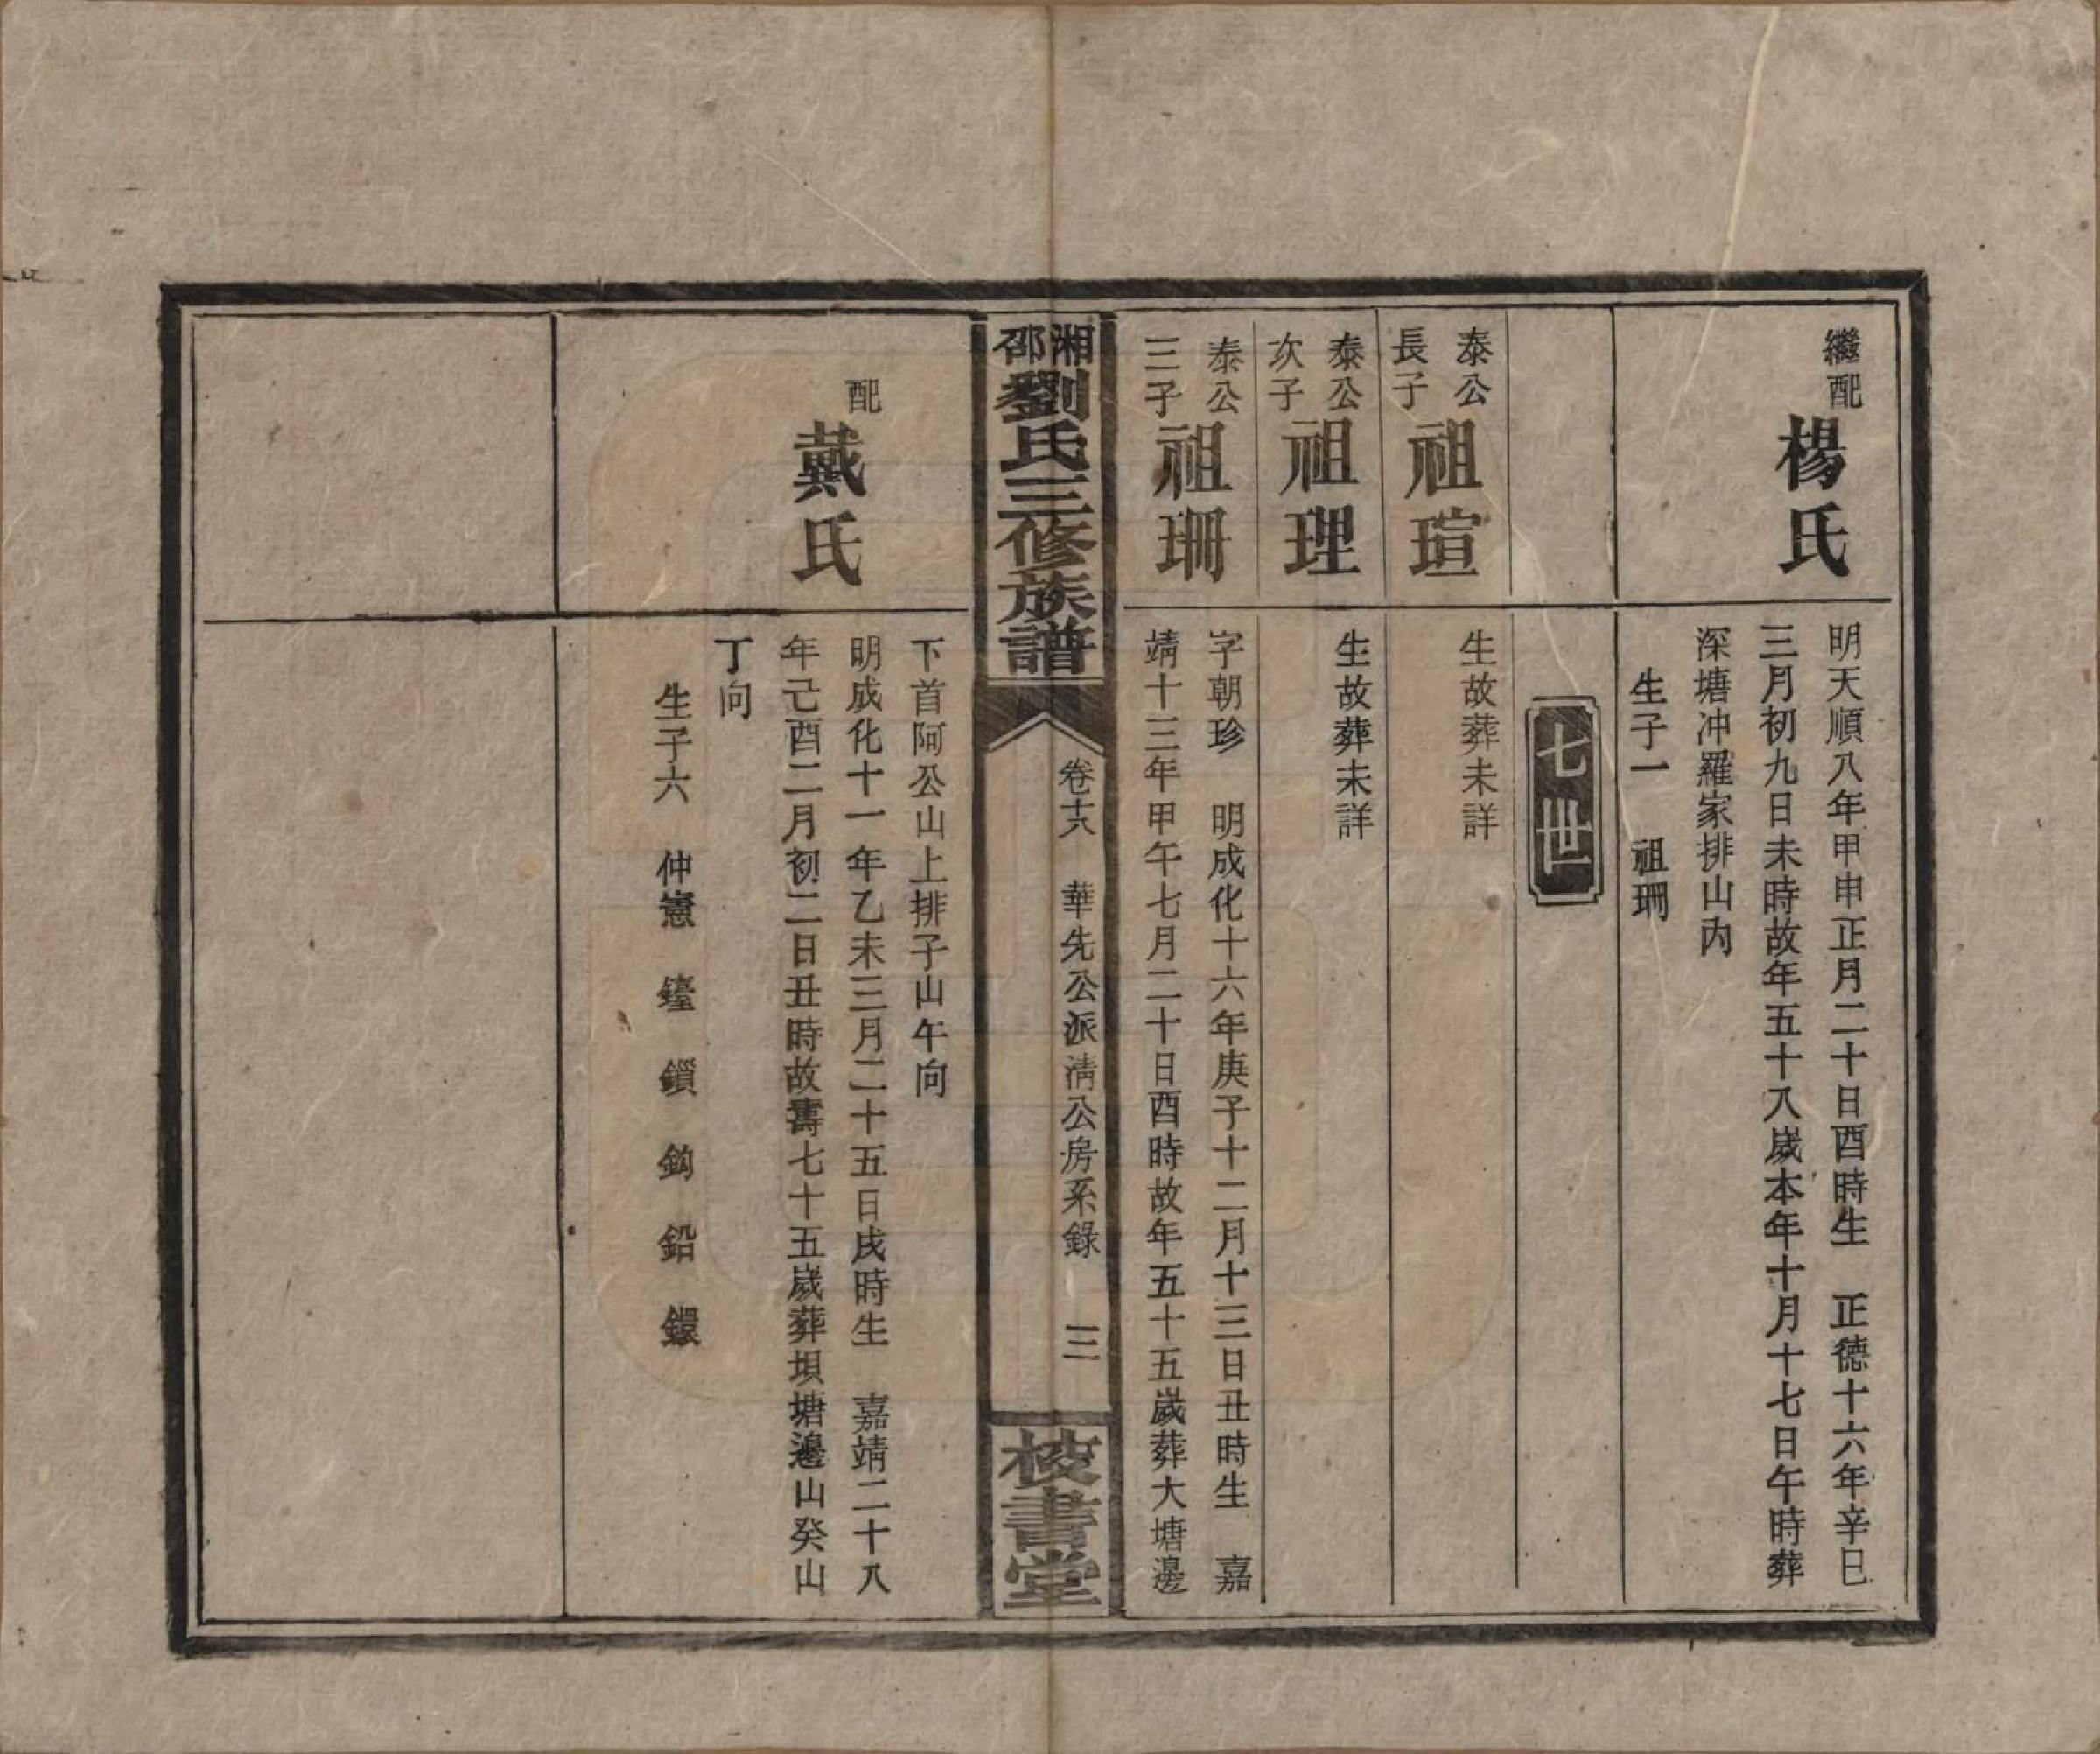 繼配
楊氏
明天順八年甲申正月二十日酉時生　正德十六年辛巳
三月初九日未時故年五十八歲本年十月十七日午時葬
深塘冲羅家排山內
生子一　祖珊
七世
泰公
長子
祖瑄
生故葬未詳
泰公
次子
祖理
生故葬未詳
泰公
三子
祖珊
字朝珍　明成化十六年庚子十二月十三日丑時生　嘉
靖十三年甲午七月二十日酉時故年五十五歲葬大塘邊
湘邵劉氏三修族譜
卷十六　華先公派清公房系錄　三
校書堂
下首阿公山上排子山午向
配
戴氏
明成化十一年乙未三月二十五日戌時生　嘉靖二十八
年己酉二月初二日丑時故壽七十五歲葬垻塘邊山癸山
丁向
生子六　仲憲　鎖　鈎　鉛　鐶